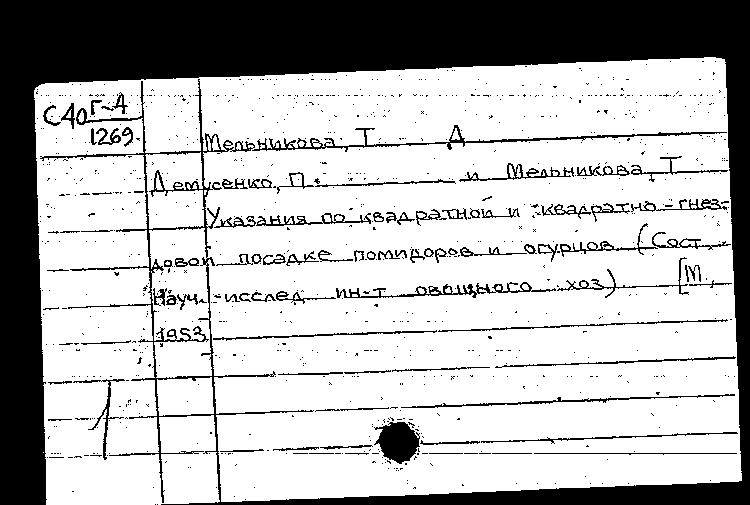 С40 Г-4
1269.
Мельникова, Т Д
Демусенко, П. и Мельникова, Т
Указания по квадратной и квадратно-гнез-
довой посадке помидоров и огурцов (Сост.
Науч.-исслед ин-т овощного хоз) [М,
1953
1